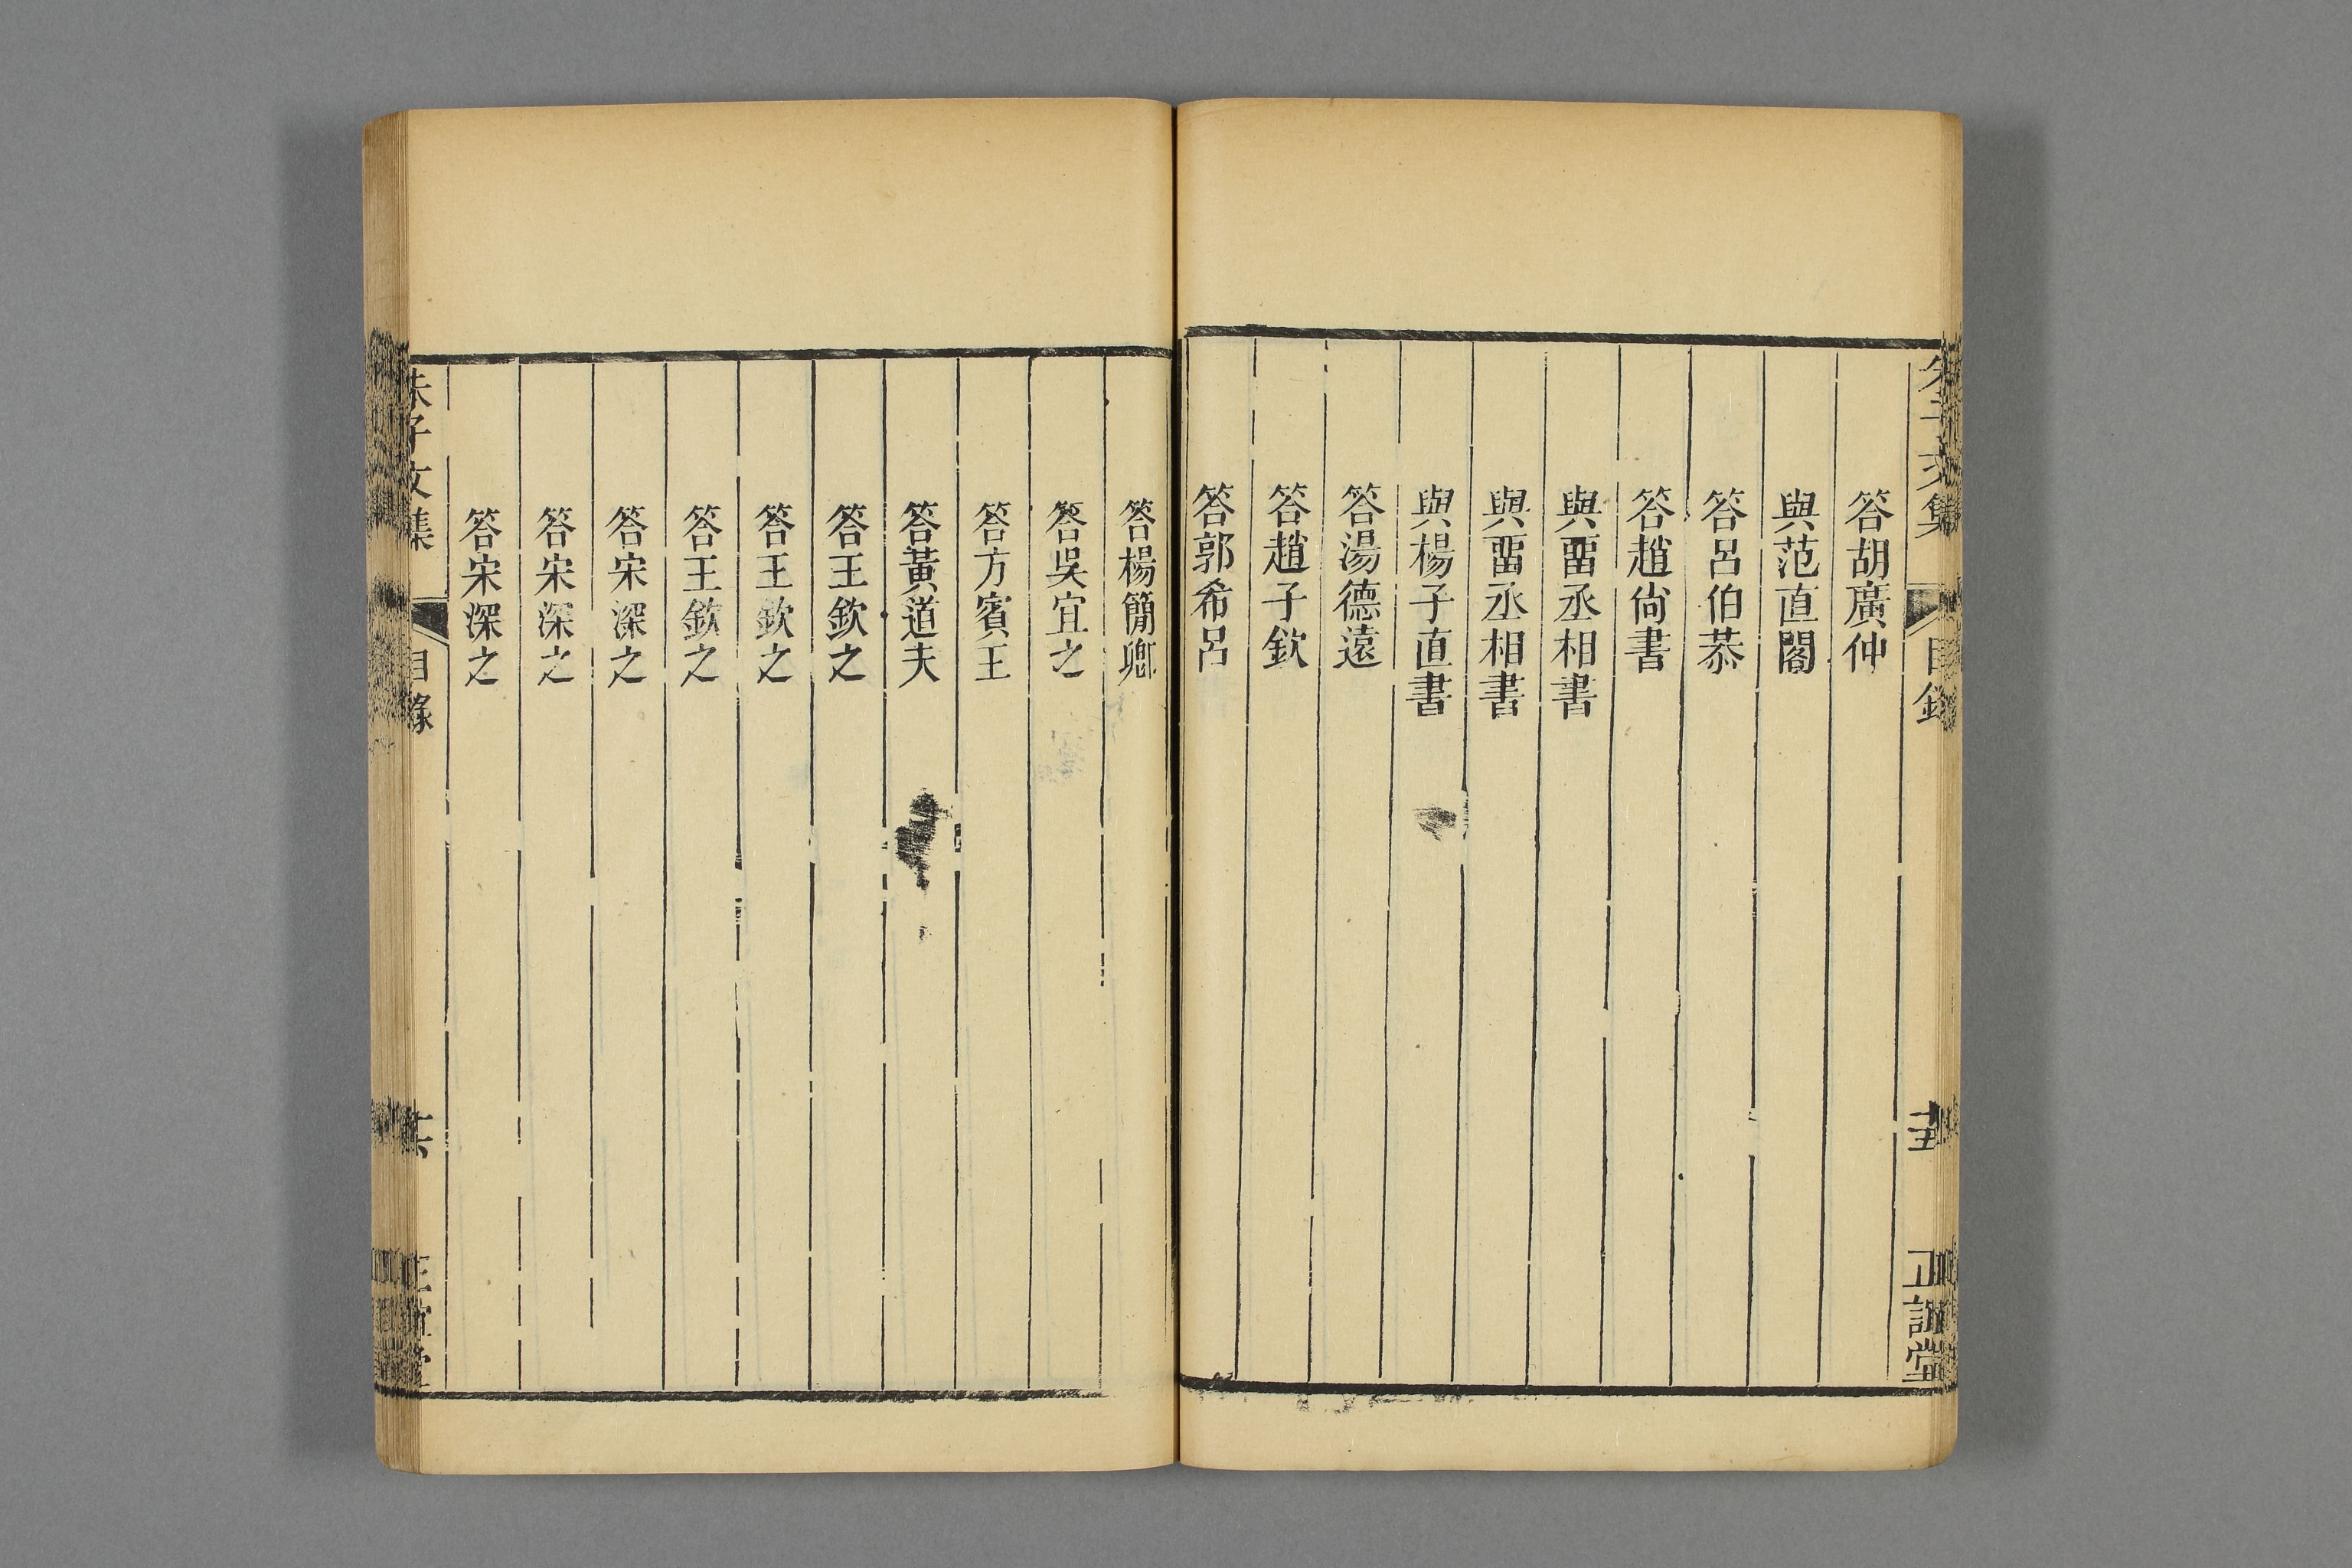 朱子文集 目錄 十五 正誼堂
答胡廣仲
與范直閣
答呂伯恭
答趙尙書
與畱丞相書
與畱丞相書
與楊子直書
答湯德遠
答趙子欽
答郭希呂
答楊簡卿
答吳宜之
答方賓王
答黃道夫
答王欽之
答王欽之
答王欽之
答宋深之
答宋深之
答宋深之
朱子文集 目錄 十六 正誼堂